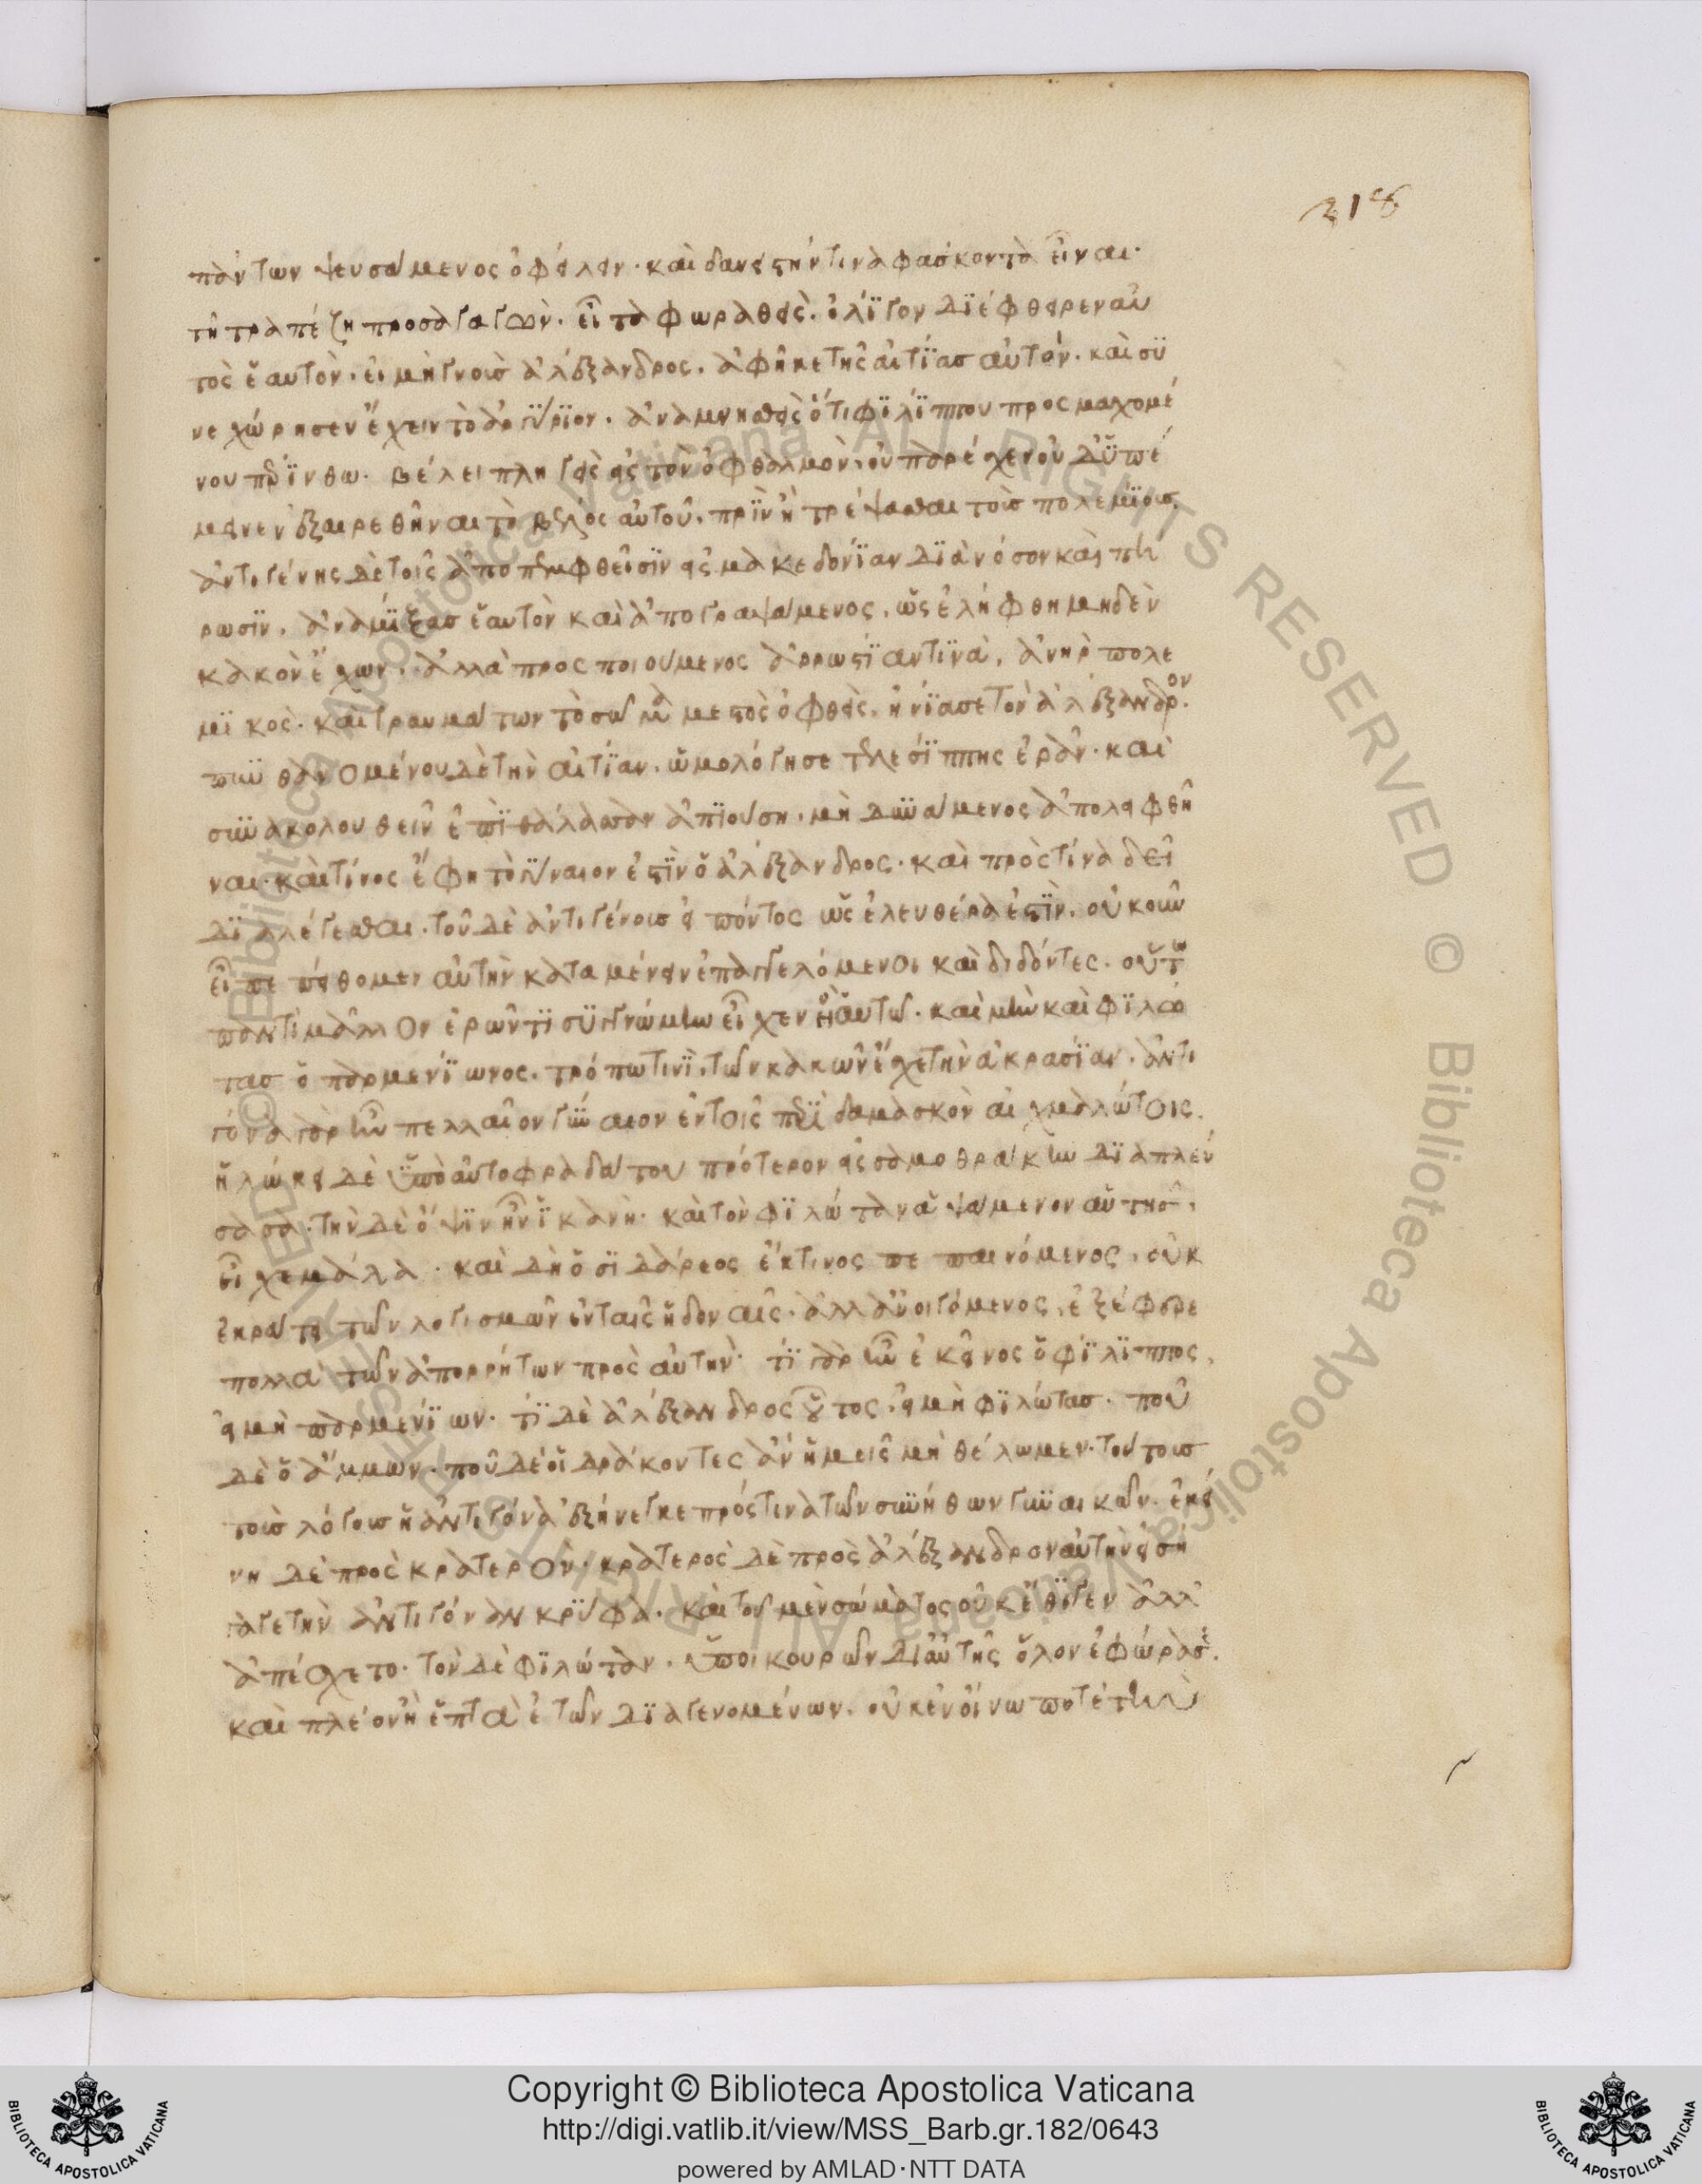 318
πάντων ψευσάμενος ὀφείλειν. καὶ δανειστήν τινα φάσκοντα εἶναι.
τῆ τραπέζη προσαγαγὼν. εἶτα φωραθεὶς. ὀλίγον διέφθειρεν αὐ
τὸς ἑαυτὸν. εἰ μὴ γνοὺς ἀλέξανδρος. ἀφῆκε τῆς αἰτίας αὐτόν. καὶ συ
νεχώρησεν ἔχειν τὸ ἀργύριον. ἀναμνησθεὶς ὅτι φιλίππου προσμαχομέ
νου περίνθω. βέλει πληγεὶς εἰς τὸν ὀφθαλμὸν. οὐ παρέχεν οὐδ' ὑπέ
μεινεν ἐξαιρεθῆναι τὸ βέλος αὐτοῦ. πρὶν ἢ τρέψασθαι τοὺς πολεμίους.
ἀντιγένης δὲ τοῖς ἀποπεμφθεῖσιν εἰς μακεδονίαν διὰ νόσον καὶ πή
ρωσιν. ἀναμίξας ἑαυτὸν καὶ ἀπογραψάμενος. ὡς ἐλήφθη μηδὲν
κακὸν ἔχων. ἀλλὰ προσποιούμενος ἀρρωστίαν τινὰ. ἀνὴρ πολε
μικὸς. καὶ τραυμάτων τὸ σῶμα μεστὸς ὀφθεὶς. ἠνίασε τὸν ἀλέξανδρον.
πυνθανομένου δὲ τὴν αἰτίαν. ὡμολόγησε τελεσίππης ἐρᾶν. καὶ
συνακολουθεῖν ἐπὶ θάλασσαν ἀπιούση. μὴ δυνάμενος ἀπολειφθῆ
ναι. καὶ τίνος ἔφη τὸ γύναιον ἐστὶν ὁ ἀλέξανδρος. καὶ πρὸς τίνα δεῖ
διαλέγεσθαι. τοῦ δὲ ἀντιγένους εἰπόντος ὡς ἐλευθέρα ἐστὶν. οὐκοῦν
εἶπε πείθομεν αὐτὴν καταμένειν ἐπαγγελόμενοι καὶ διδόντες. οὕτω
παντὶ μᾶλλον ἐρῶντι συγγνώμην εἶχεν ἢ ἑαυτῶ. καὶ μὴν καὶ φιλώ
τας ὁ παρμενίωνος. τρόπω τινὶ. τῶν κακῶν ἔχε τὴν ἀκρασίαν. ἀντι
γόνα γὰρ ἦν πελλαῖον γύναιον ἐν τοῖς περὶ δαμασκὸν αἰχμαλώτοις.
ἡλώκει δὲ ὑπὸ αὐτοφραδάτου πρότερον εἰς σαμοθράκην διαπλεύ
σασα. τὴν δὲ ὄψιν ἦν ἱκανὴ. καὶ τὸν φιλώταν ἁψάμενον αὐτῆς.
εἶχε μάλα. καὶ δὴ ὁ σιδάρεος ἐκτινος πεπαινόμενος. οὐκ
ἐκράτει τῶν λογισμῶν ἐν ταῖς ἡδοναῖς. ἀλλ' ἀνοιγόμενος. ἐξέφερε
πολλὰ τῶν ἀπορρήτων πρὸς αὐτὴν. τί γὰρ ἦν ἐκεῖνος ὁ φίλιππος.
εἰ μὴ παρμενίων. τί δὲ ἀλέξανδρος οὗτος. εἰ μὴ φιλώτας. ποῦ
δὲ ὁ ἄμμων. ποῦ δὲ οἱ δράκοντες ἂν ἡμεῖς μὴ θέλωμεν. τούτους
τοὺς λόγους ἡ ἀντιγόνα ἐξήνεγκε πρός τινα τῶν συνήθων γυναικῶν. ἐκεί
νη δὲ πρὸς κρατερὸν. κρατερὸς δὲ πρὸς ἀλέξανδρον αὐτὴν εἰσή
γαγε τὴν ἀντιγόναν κρύφα. καὶ τοῦ μὲν σώματος οὐκ ἔθιγεν ἀλλ'
ἀπέσχετο. τὸν δὲ φιλώταν. ὑποικουρῶν δι' αὐτῆς ὅλον ἐφώρασε.
καὶ πλέον ἢ ἑπτὰ ἐτῶν διαγενομένων. οὐκ ἐν οἴνω ποτὲ τὴν
Copyright © Biblioteca Apostolica Vaticana
http://digi.vatlib.it/view/MSS_Barb.gr.182/0643
powered by AMLAD·NTT DATA